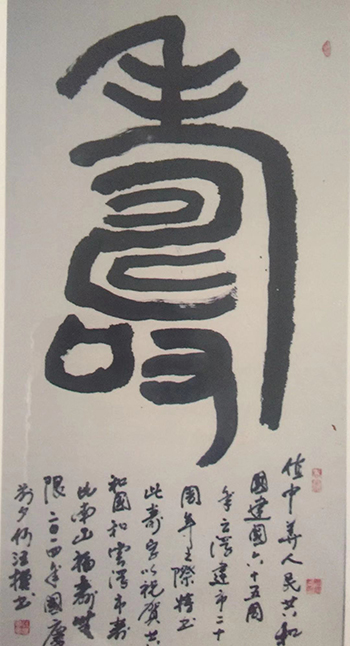 壽
值中華人民共和
國建國六十五周
年云浮建市二十
周年之際特书
此壽字以祝賀共
和國和雲浮市壽
比南山福壽無
限二〇一四年國慶
前夕书